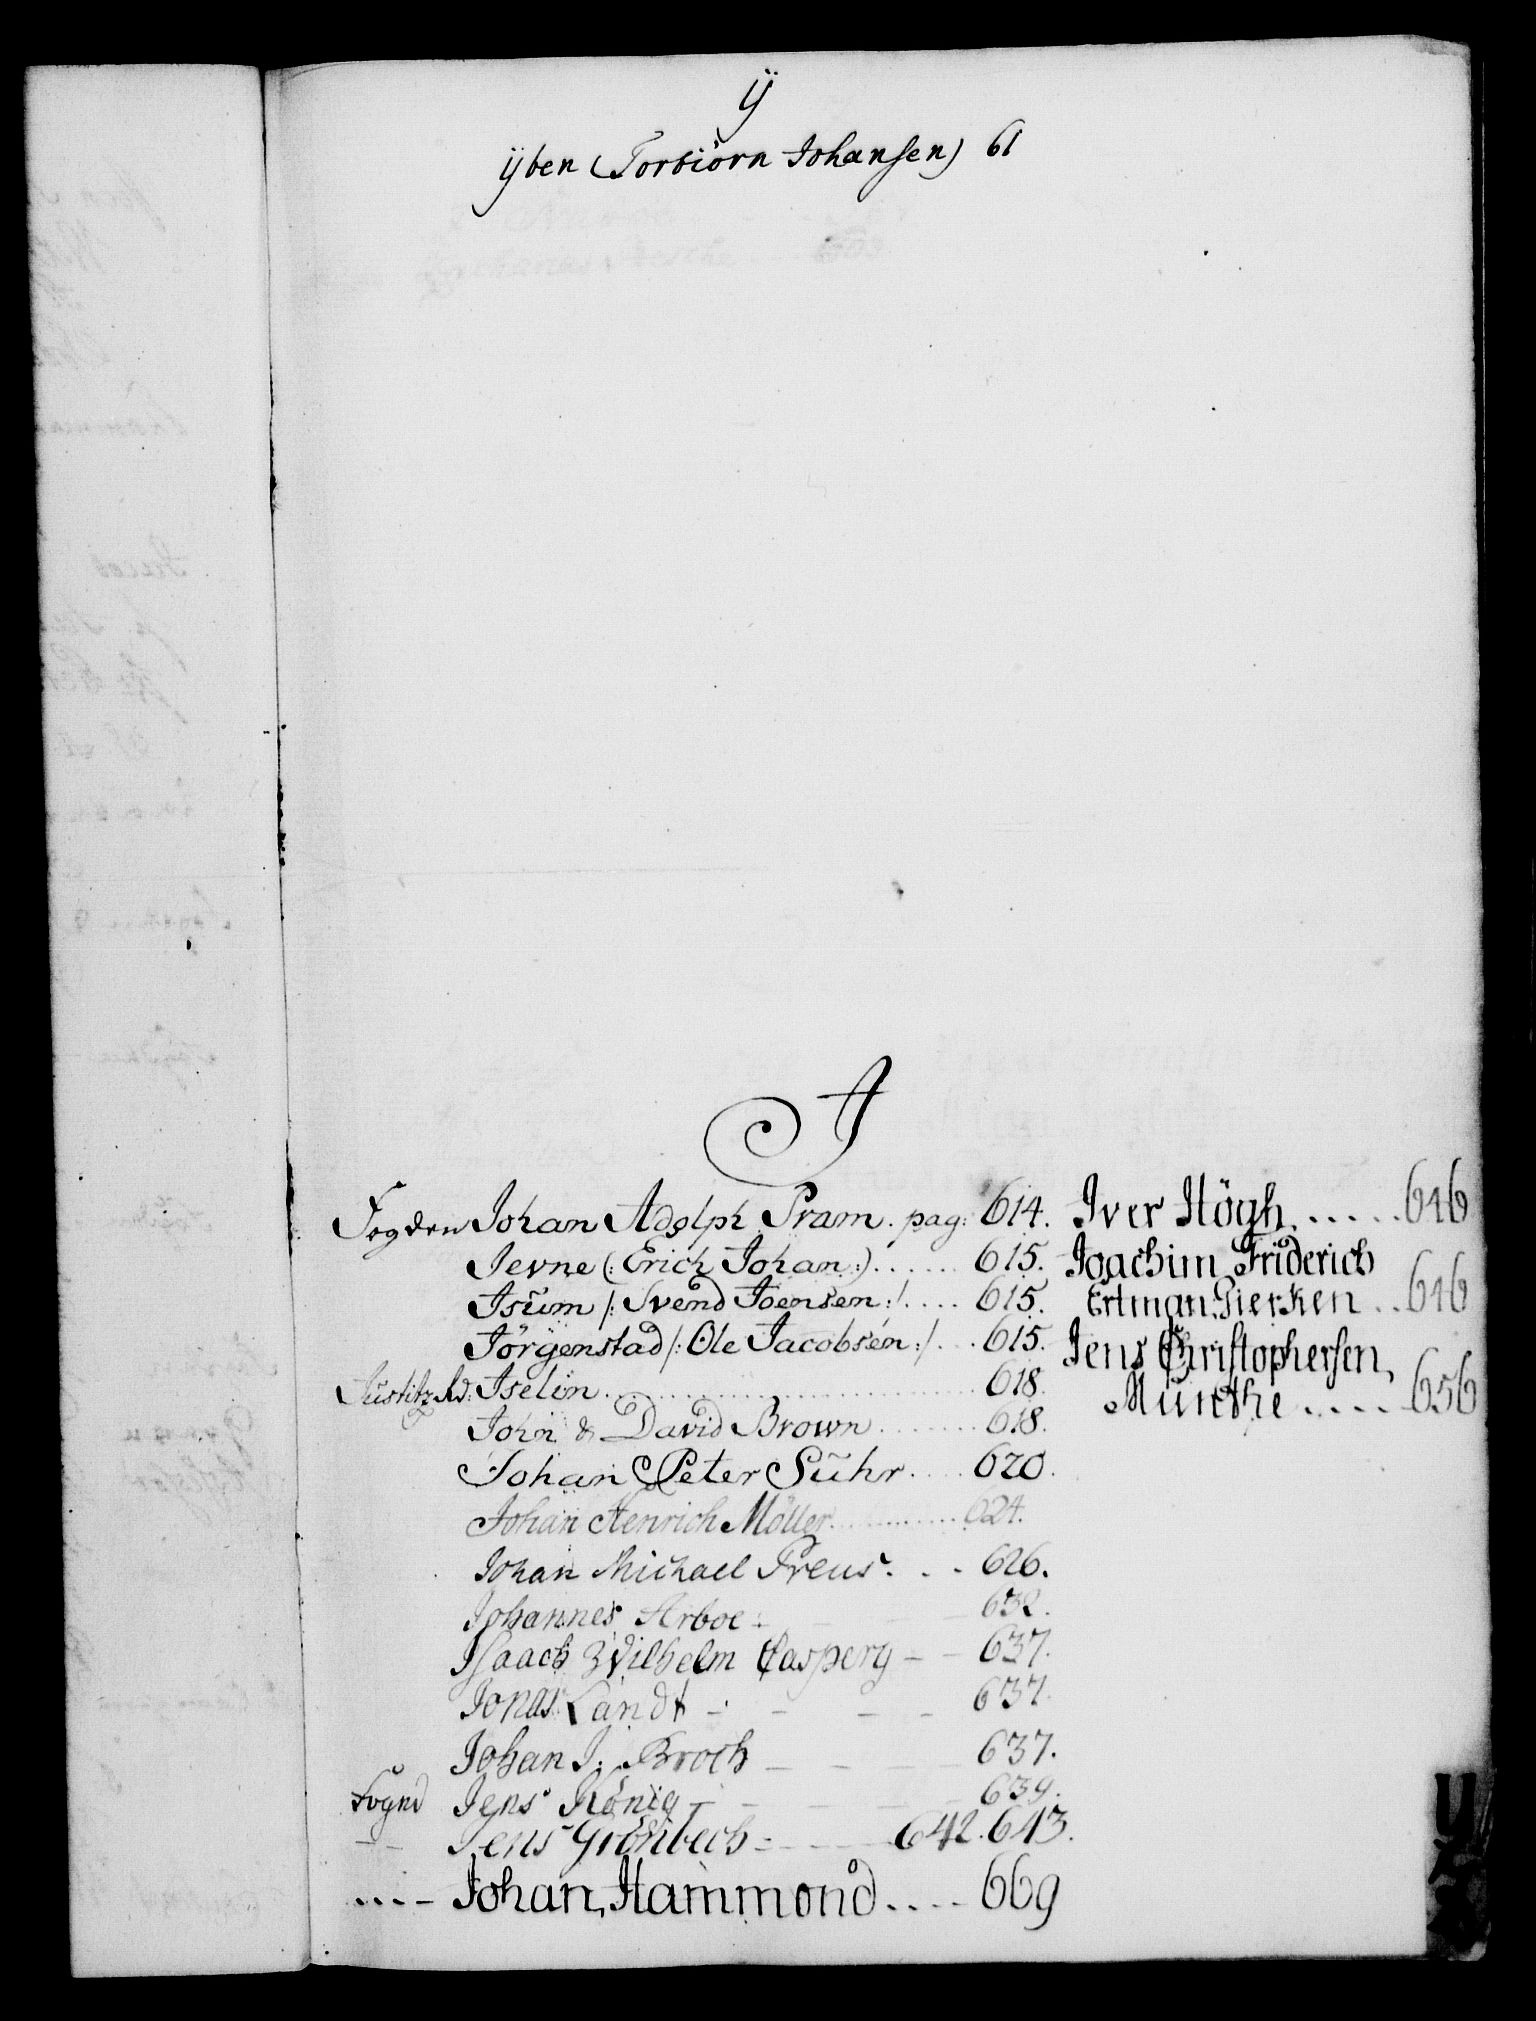 ÿ
ÿben (Torbiörn Johansen) 61
J
Fogden Johan Adolph Pram. pag: 614.
Jevne (: Erich Johan :) ...... 615.
Isüm /: Svend Joensen :/ .... 615.
Jörgenstad /: Ole Jacobsén :/ ... 615.
Justitz Rd: Iselin ........ 618.
John & David Brown ....... 618.
Johan Peter Sühr .... 620.
Johan Henrich Möller ........ 624.
Johan Michael Preus. . . . 626.
Johannes Arboe : 632.
Isaach Wilhelm Casperg – – 637.
Jonas Landt – – – – 637.
Johan J. Broch – – – 637.
Fogend Jens König – – – – 639.
– – Jens Grönbech = – – 642. 643.
. . . – Johan Hammond .... 669
Iver Högh ...... 646
Joachim Friderich
Ertman Pierken .. 646
Jens Christophersen
Münthe ..... 656
Y